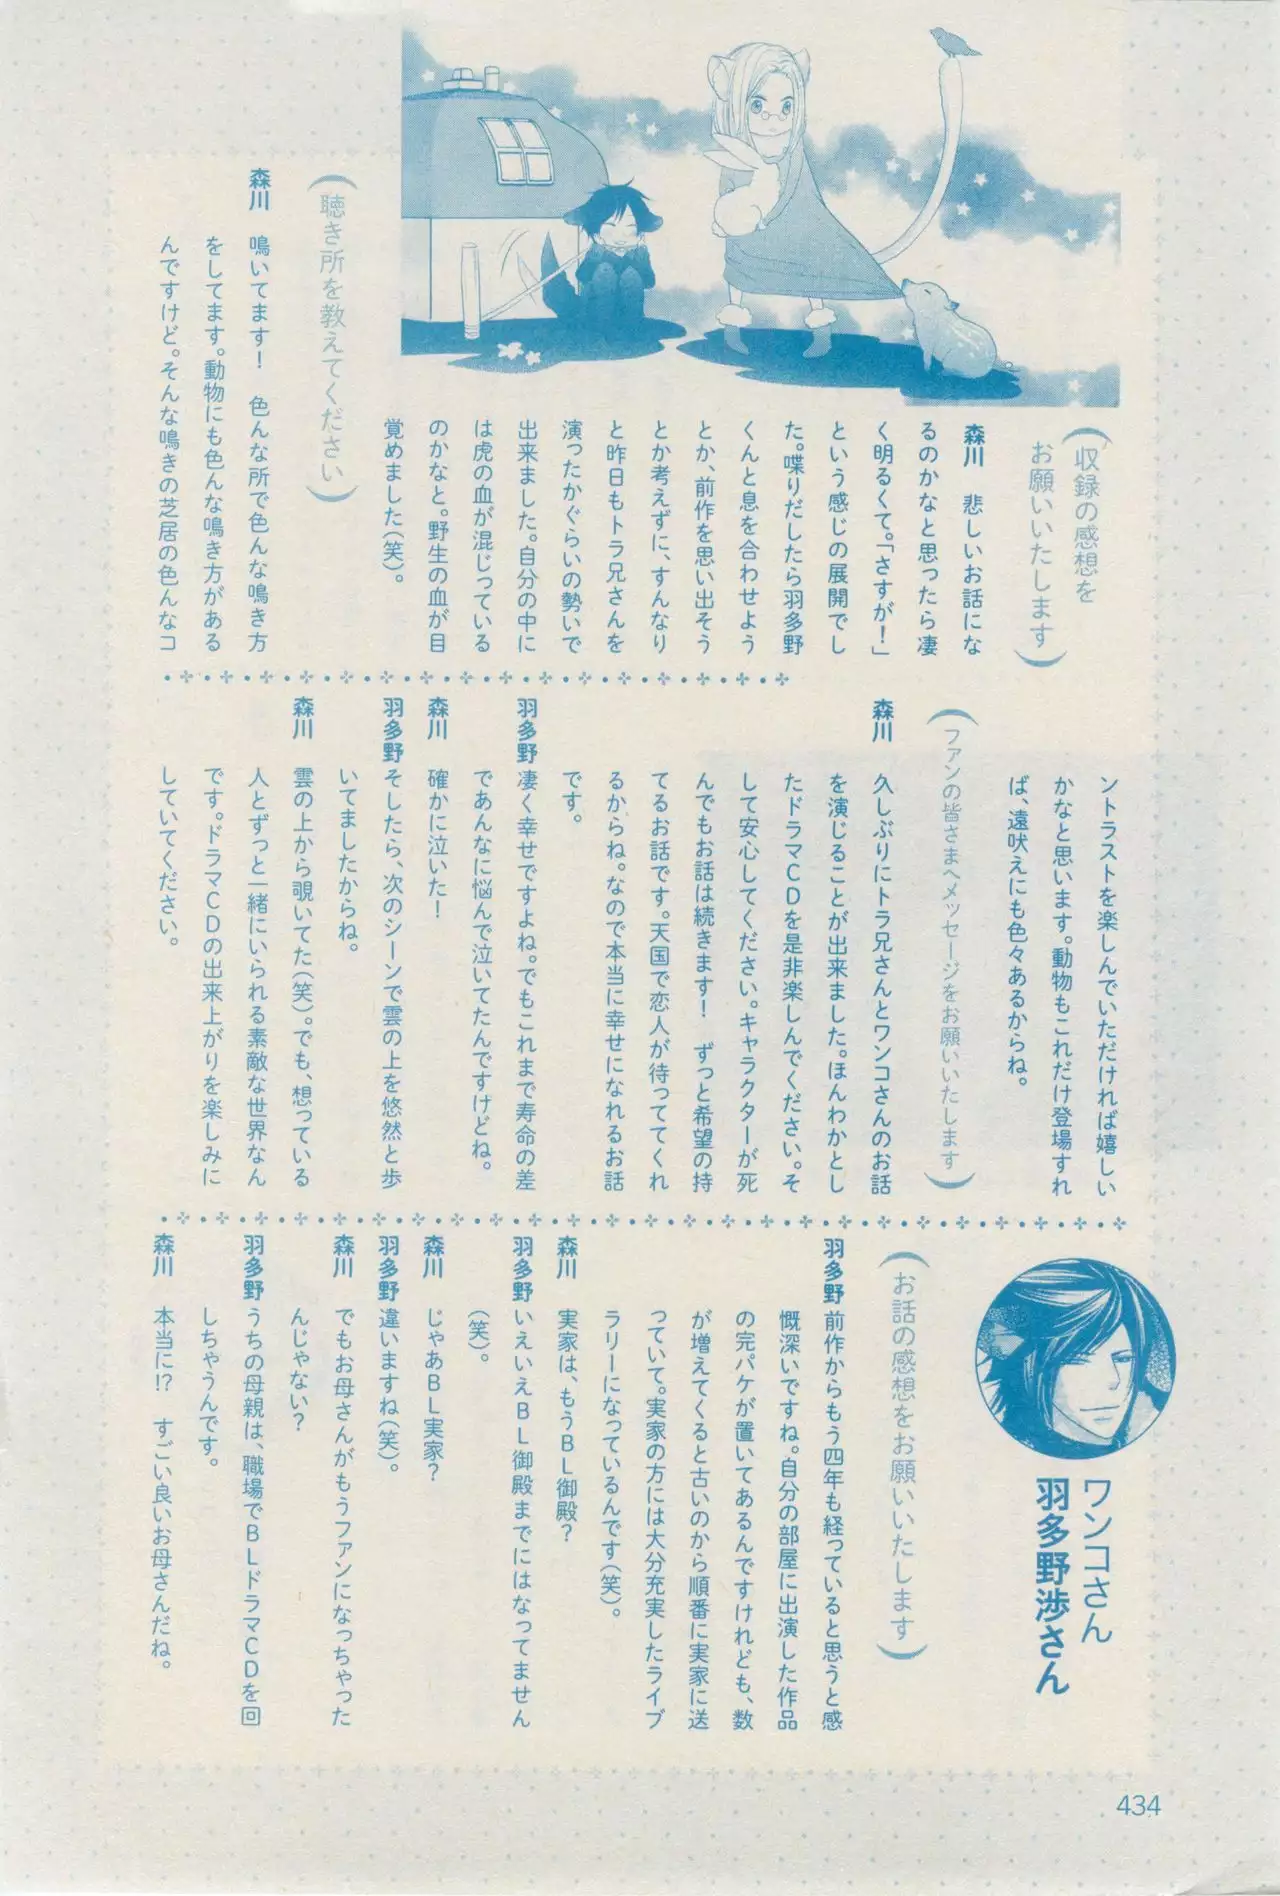 （収録の感想を
お願いいたします）
森川　悲しいお話にな
るのかなと思ったら凄
く明るくて。「さすが！」
という感じの展開でし
た。喋りだしたら羽多野
くんと息を合わせよう
とか、前作を思い出そう
とか考えずに、すんなり
と昨日もトラ兄さんを
演ったかぐらいの勢いで
出来ました。自分の中に
は虎の血が混じっている
のかなと。野生の血が目
覚めました（笑）。
（聴き所を教えてください）
森川　鳴いてます！　色んな所で色んな鳴き方
をしてます。動物にも色んな鳴き方がある
んですけど。そんな鳴きの芝居の色んなコ
ントラストを楽しんでいただければ嬉しい
かなと思います。動物もこれだけ登場すれ
ば、遠吠えにも色々あるからね。
（ファンの皆さまへメッセージをお願いいたします）
森川　久しぶりにトラ兄さんとワンコさんのお話
を演じることが出来ました。ほんわかとし
たドラマＣＤを是非楽しんでください。そ
して安心してください。キャラクターが死
んでもお話は続きます！　ずっと希望の持
てるお話です。天国で恋人が待っててくれ
るからね。なので本当に幸せになれるお話
です。
羽多野　凄く幸せですよね。でもこれまで寿命の差
であんなに悩んで泣いてたんですけどね。
森川　確かに泣いた！
羽多野　そしたら、次のシーンで雲の上を悠然と歩
いてましたからね。
森川　雲の上から覗いてた（笑）。でも、想っている
人とずっと一緒にいられる素敵な世界なん
です。ドラマＣＤの出来上がりを楽しみに
していてください。
ワンコさん
羽多野渉さん
（お話の感想をお願いいたします）
羽多野　前作からもう四年も経っていると思うと感
慨深いですね。自分の部屋に出演した作品
の完パケが置いてあるんですけれども、数
が増えてくると古いのから順番に実家に送
っていて。実家の方には大分充実したライブ
ラリーになっているんです（笑）。
森川　実家は、もうＢＬ御殿？
羽多野　いえいえＢＬ御殿までにはなってません
（笑）。
森川　じゃあＢＬ実家？
羽多野　違いますね（笑）。
森川　でもお母さんがもうファンになっちゃった
んじゃない？
羽多野　うちの母親は、職場でＢＬドラマＣＤを回
しちゃうんです。
森川　本当に!?　すごい良いお母さんだね。
434